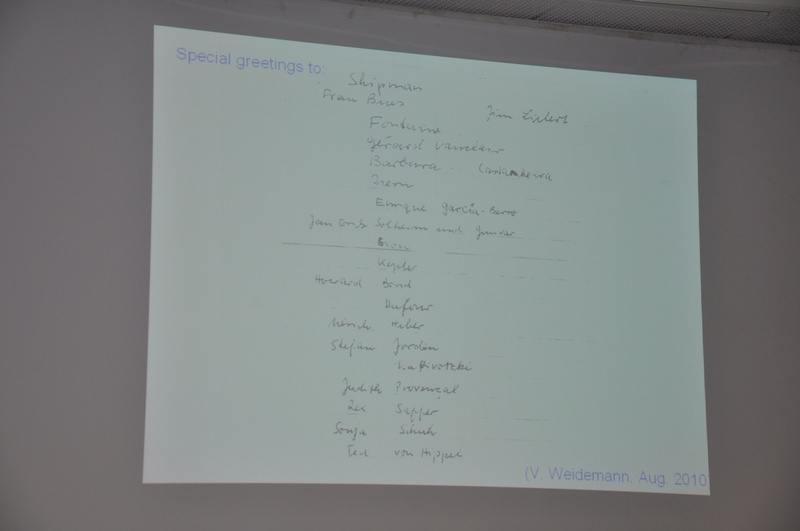 Special greetings to:
Shipman
Frau Bues Jim Liebert
Fontaine
Gérard Vauclair
Barbara Castanheira
Enrique García-Berro
Solheim und Gunvor
Kepler
Howard Bond
Dufour
Heber
Stefan Jordan
Judith Provencal
Rex Saffer
Sonja Schuh
Ted von Hippel
(V. Weidemann, Aug. 2010